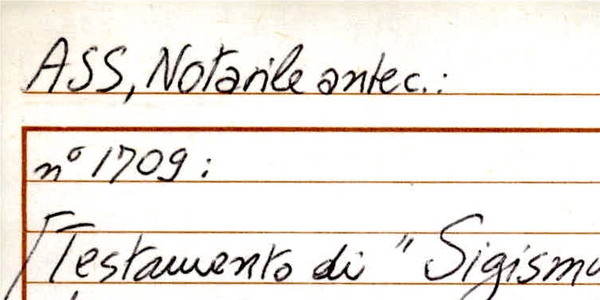 ASS, Notarile antec.:
n° 1709:
[Testamento di "Sigismu